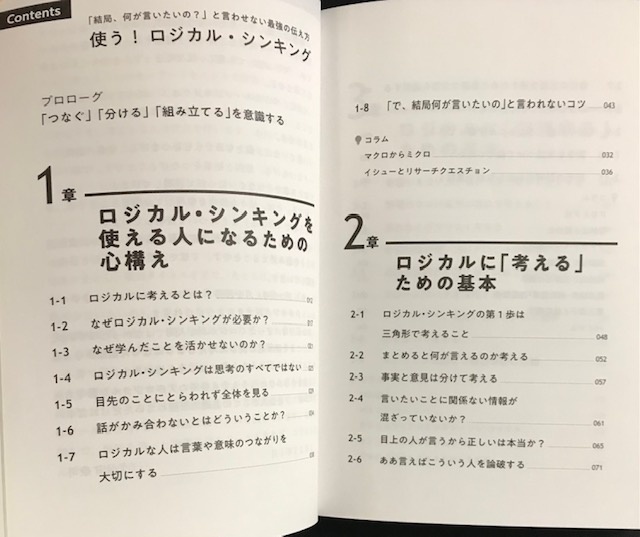 Contents
「結局、何が言いたいの？」と言わせない最強の伝え方
使う！ロジカル・シンキング
プロローグ
「つなぐ」「分ける」「組み立てる」を意識する
1章
ロジカル・シンキングを
使える人になるための
心構え
1-1 ロジカルに考えるとは？ 012
1-2 なぜロジカル・シンキングが必要か？ 017
1-3 なぜ学んだことを活かせないのか？
1-4 ロジカル・シンキングは思考のすべてではない
1-5 目先のことにとらわれず全体を見る
1-6 話がかみ合わないとはどういうことか？
1-7 ロジカルな人は言葉や意味のつながりを
大切にする
1-8 「で、結局何が言いたいの」と言われないコツ 043
コラム
マクロからミクロ 032
イシューとリサーチクエスチョン 036
2章
ロジカルに「考える」
ための基本
2-1 ロジカル・シンキングの第1歩は
三角形で考えること 048
2-2 まとめると何が言えるのか考える 052
2-3 事実と意見は分けて考える 057
2-4 言いたいことに関係ない情報が
混ざっていないか？ 061
2-5 目上の人が言うから正しいは本当か？ 065
2-6 ああ言えばこういう人を論破する 071